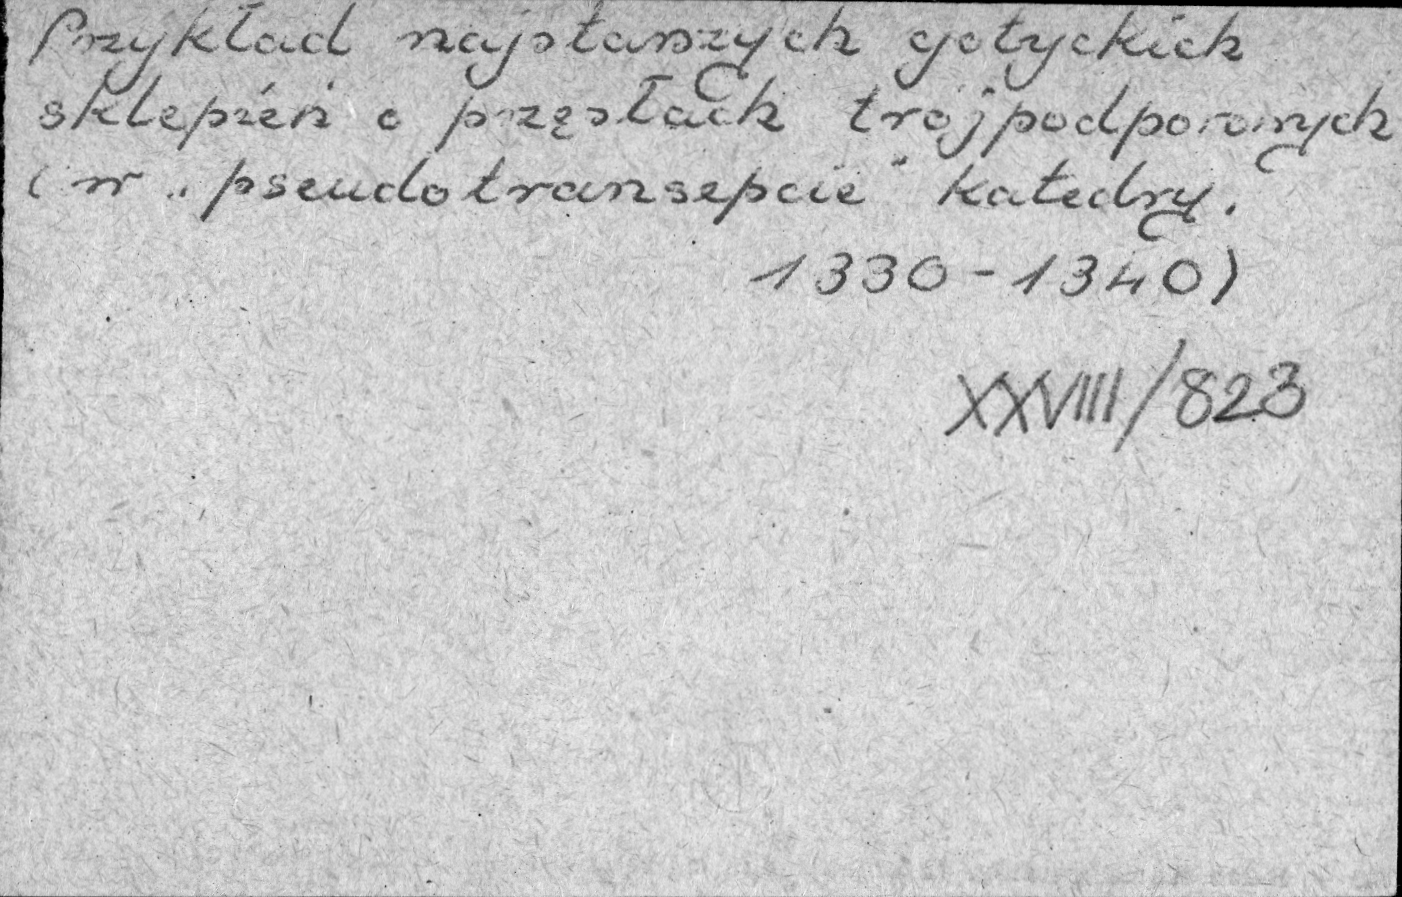 Przykład najstarszych gotyckich
sklepień o przęsłach trójpodporowych
(w „pseudotransepcie" katedry.
1330-1340)
XXVIII/823